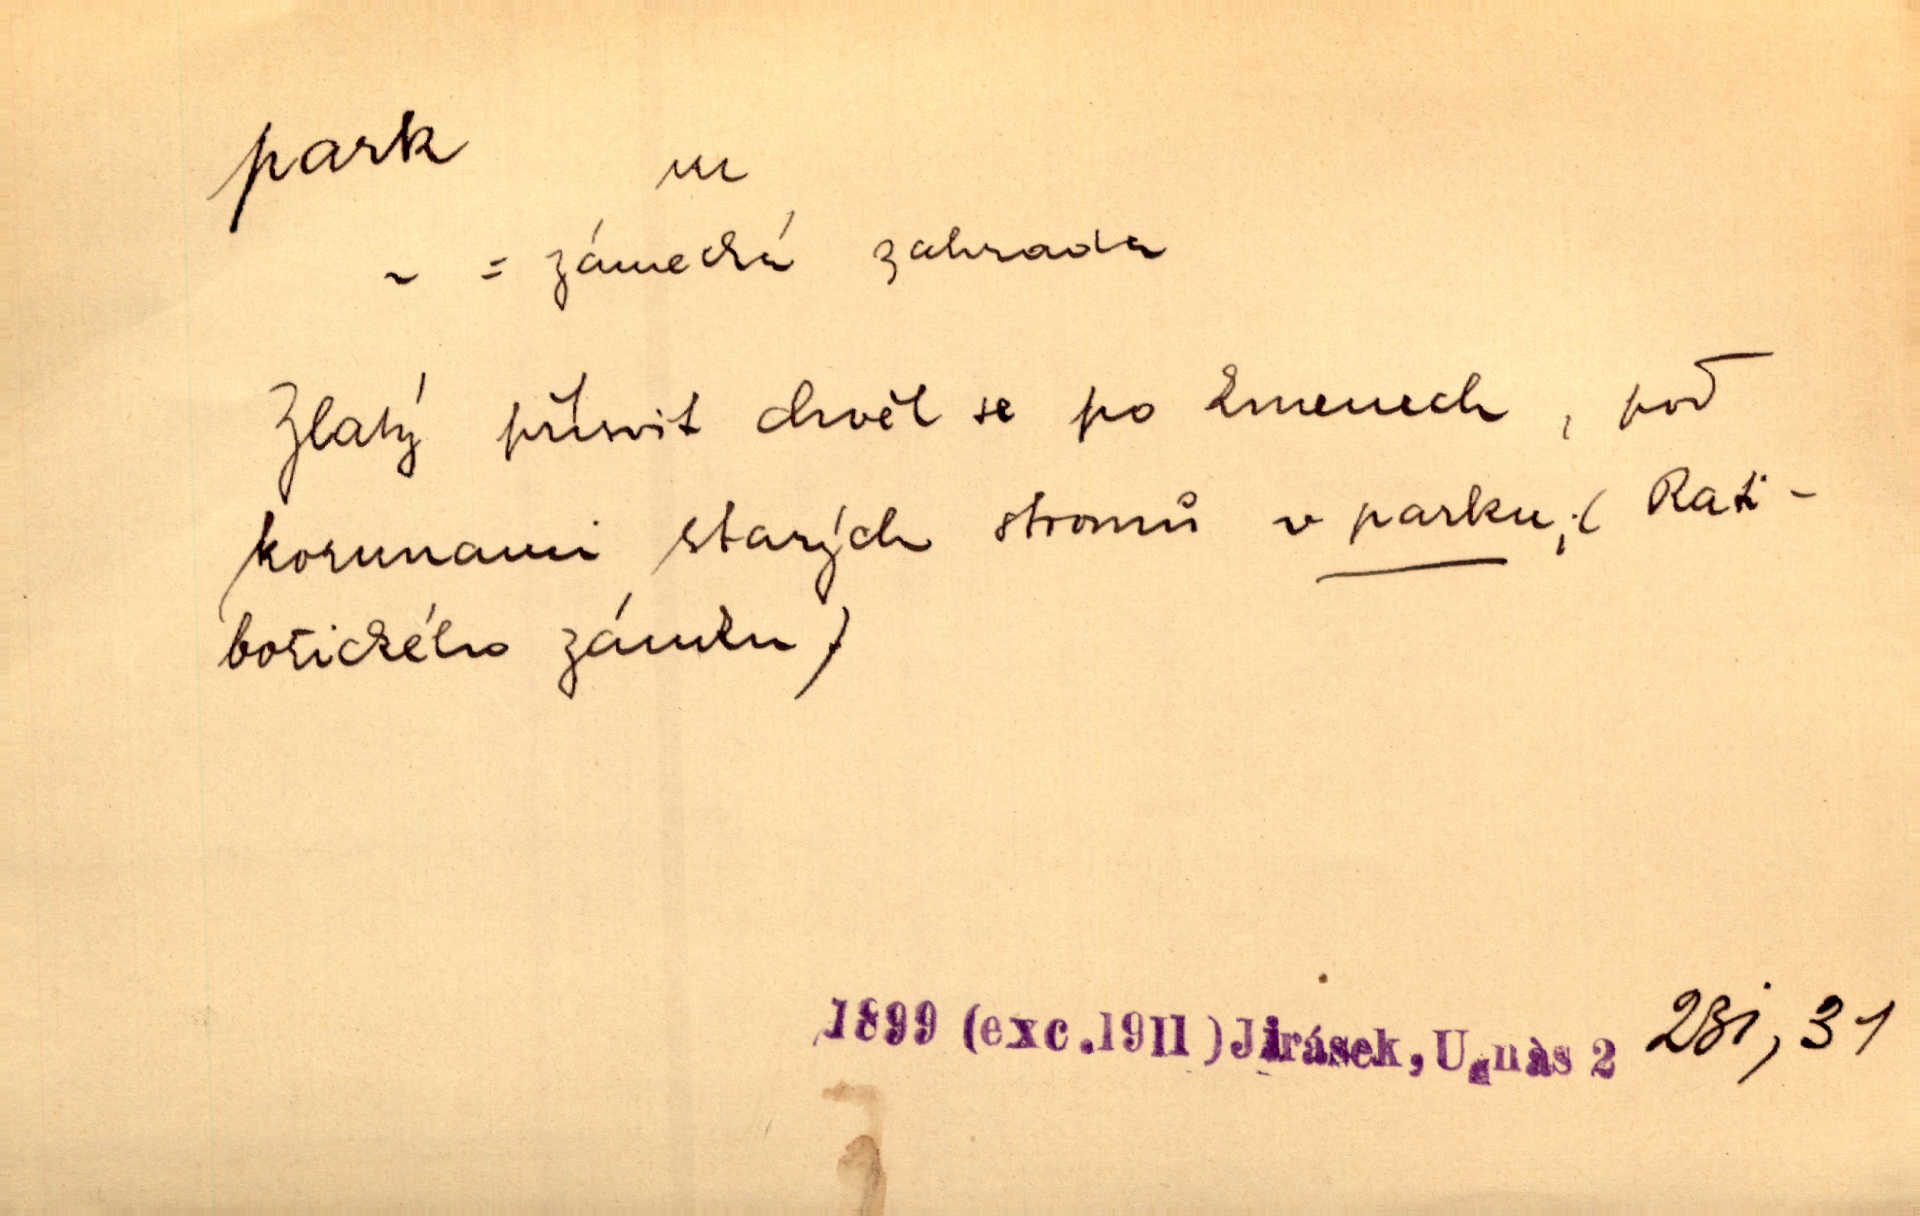 park m
~ = zámecká zahrada
Zlatý přísvit chvěl se po kmenech, pod
korunami starých stromů v parku; ( Rati-
bořického zámku)
1899 (exc.1911)Jirásek, U nás 2 231, 31